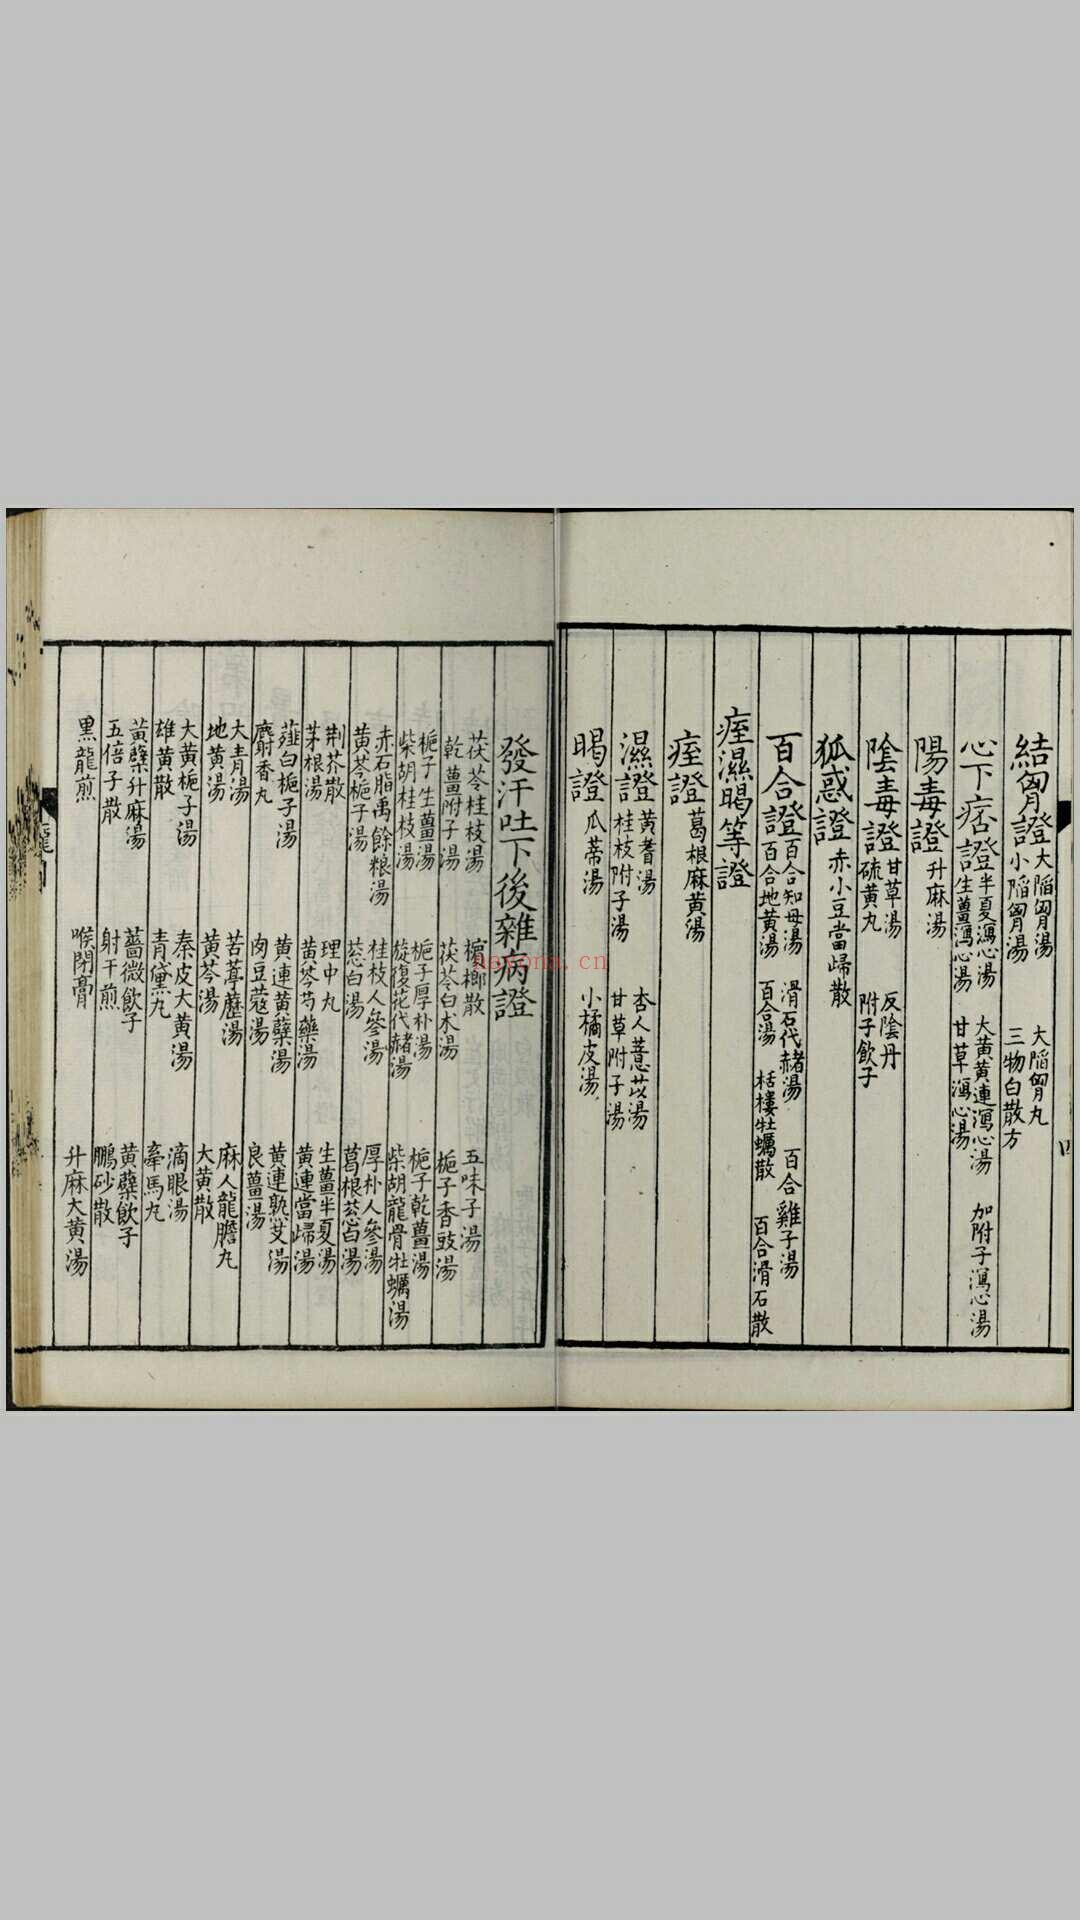 結胷證大陷胷湯 大陷胷丸
小陷胷湯 三物白散方
心下痞證半夏瀉心湯 大黄黄連瀉心湯 加附子瀉心湯
生薑瀉心湯 甘草瀉心湯
陽毒證 升麻湯
陰毒證甘草湯 反陰丹
硫黄丸 附子飲子
狐惑證 赤小豆當歸散
百合證百合知母湯 滑石代赭湯 百合雞子湯
百合地黄湯 百合湯 栝樓牡蠣散 百合滑石散
痓濕暍等證
痓證 葛根麻黄湯
濕證黄耆湯 杏人薏苡湯
桂枝附子湯 甘草附子湯
暍證 瓜蒂湯 小橘皮湯
四
發汗吐下後雜病證
茯苓桂枝湯 檳榔散 五味子湯
乾薑附子湯 茯苓白术湯 梔子香豉湯
梔子生薑湯 梔子厚朴湯 梔子乾薑湯
柴胡桂枝湯 旋復花代赭湯 柴胡龍骨牡蠣湯
赤石脂禹餘粮湯 桂枝人參湯 厚朴人參湯
黄芩梔子湯 葱白湯 葛根葱白湯
荆芥散 理中丸 生薑半夏湯
茅根湯 黄芩芍藥湯 黄連當歸湯
薤白梔子湯 黄連黄蘗湯 黄連熟艾湯
麝香丸 肉豆蔻湯 良薑湯
大青湯 苦葶藶湯 麻人龍膽丸
地黄湯 黄芩湯 大黄散
大黄梔子湯 秦皮大黄湯 滴眼湯
雄黄散 青黛丸 牽馬丸
黄蘗升麻湯 薔薇飲子 黄蘗飲子
五倍子散 射干煎 鵬砂散
黑龍煎 喉閉膏 升麻大黄湯
nayona.cn